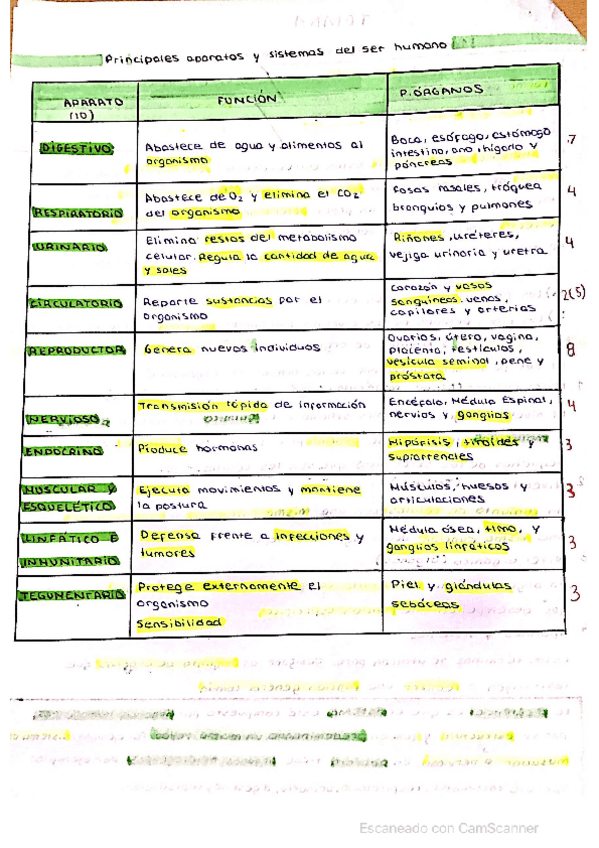 Principales aparatos y sistemas del ser humano
APARATO (10)
FUNCIÓN
P. ÓRGANOS
DIGESTIVO
Abastece de agua y alimentos al
organismo
Boca, esófago, estómago
intestino, ano, hígado y
páncreas
7
RESPIRATORIO
Abastece de O2 y elimina el CO2
del organismo
Fosas nasales, tráquea
bronquios y pulmones
4
URINARIO
Elimina restos del metabolismo
celular. Regula la cantidad de agua
y sales
Riñones, uréteres,
vejiga urinaria y uretra
4
CIRCULATORIO
Reparte sustancias por el
organismo
Corazón y vasos
sanguíneos: venas,
capilares y arterias
2(5)
REPRODUCTOR
Genera nuevos individuos
Ovarios, útero, vagina,
placenta, testículos,
vesícula seminal, pene y
próstata
8
NERVIOSO
Transmisión rápida de información
Encéfalo, Médula Espinal,
nervios y ganglios
4
ENDOCRINO
Produce hormonas
Hipófisis, tiroides y
suprarrenales
3
MUSCULAR Y
ESQUELÉTICO
Ejecuta movimientos y mantiene
la postura
Músculos, huesos y
articulaciones
3
LINFÁTICO E
INMUNITARIO
Defensa frente a infecciones y
tumores
Médula ósea, timo, y
ganglios linfáticos
3
TEGUMENTARIO
Protege externamente el
organismo
Sensibilidad
Piel y glándulas
sebáceas
3
Escaneado con CamScanner